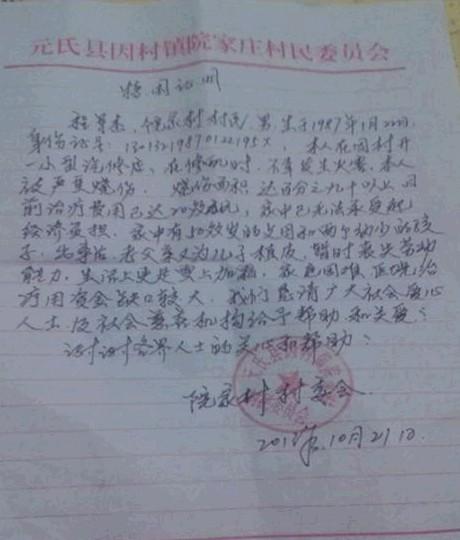 元氏县因村镇院家庄村民委员会
特困证明
院家村村民,男,生于1987年1月22日,
身份证号:13013219870122195X,本人在因村开
一小型汽修店,在修配时,不幸发生火灾,本人
被严重烧伤,烧伤面积达百分之九十以上,目
前治疗费用已达20余万,家中已无法承受起
经济负担,家中有50多岁的父母和两个幼小的孩
子,老父亲又为儿子植皮,暂时丧失劳动
能力,生活上更是雪上加霜,家庭困难,医院治
疗用资金缺口较大,我们恳请广大社会爱心
人士及社会慈善机构给予帮助和关爱:
谢谢各界人士的关心和帮助:
院家村村委会
10月21日